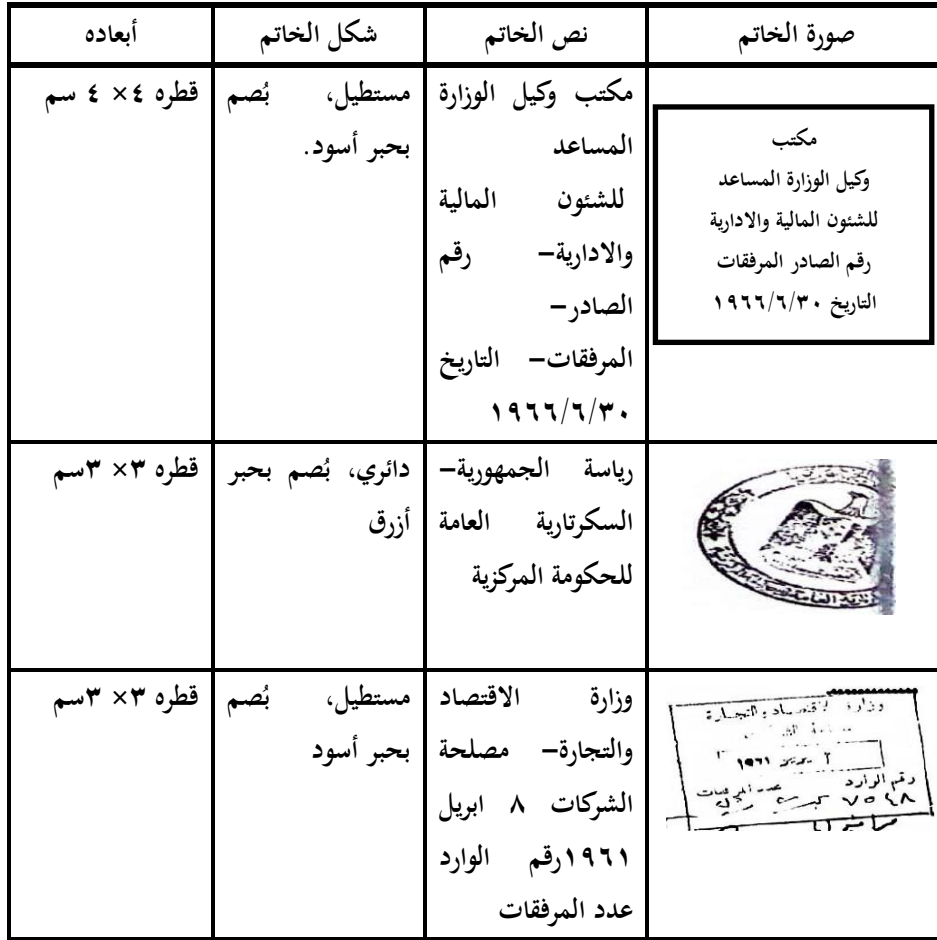 صورة الخاتم	نص الخاتم	شكل الخاتم	أبعاده
مكتب
وكيل الوزارة المساعد
للشئون المالية والادارية
رقم الصادر المرفقات
التاريخ ١٩٦٦/٦/٣٠
مكتب وكيل الوزارة
المساعد
للشئون المالية
والادارية– رقم
الصادر–
المرفقات– التاريخ
١٩٦٦/٦/٣٠
مستطيل، بُصم
بحبر أسود.
قطره ٤× ٤ سم
رياسة الجمهورية–
السكرتارية العامة
للحكومة المركزية
دائري، بُصم بحبر
أزرق
قطره ٣× ٣سم
وزارة الاقتصاد والتجارة
١٩٦١
رقم الوارد عدد المرفقات
٧٥٤٨
وزارة الاقتصاد
والتجارة– مصلحة
الشركات ٨ ابريل
١٩٦١رقم الوارد
عدد المرفقات
مستطيل، بُصم
بحبر أسود
قطره ٣× ٣سم